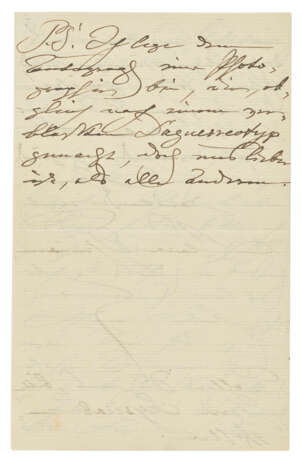 P.S. Ich lege dem
Autograph eine Photo-
graphie bei, die, ob-
gleich nach einem ver-
blaßten Daguerreotyp
gemacht, doch uns lieber
ist, als alle anderen.